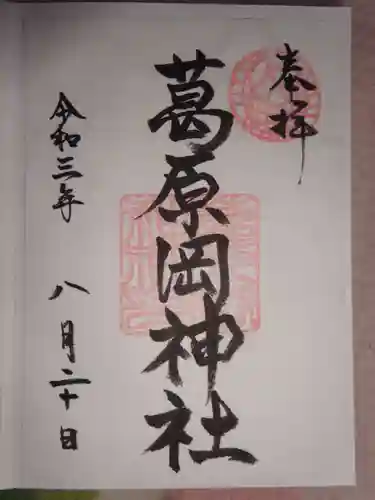 奉拝
葛原岡神社
令和三年 八月二十日